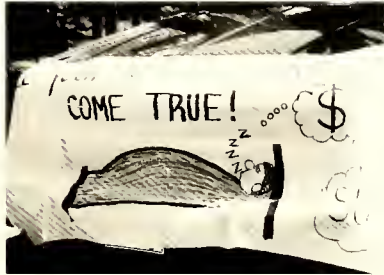 COME TRUE!
Z
Z
Z
Z
$